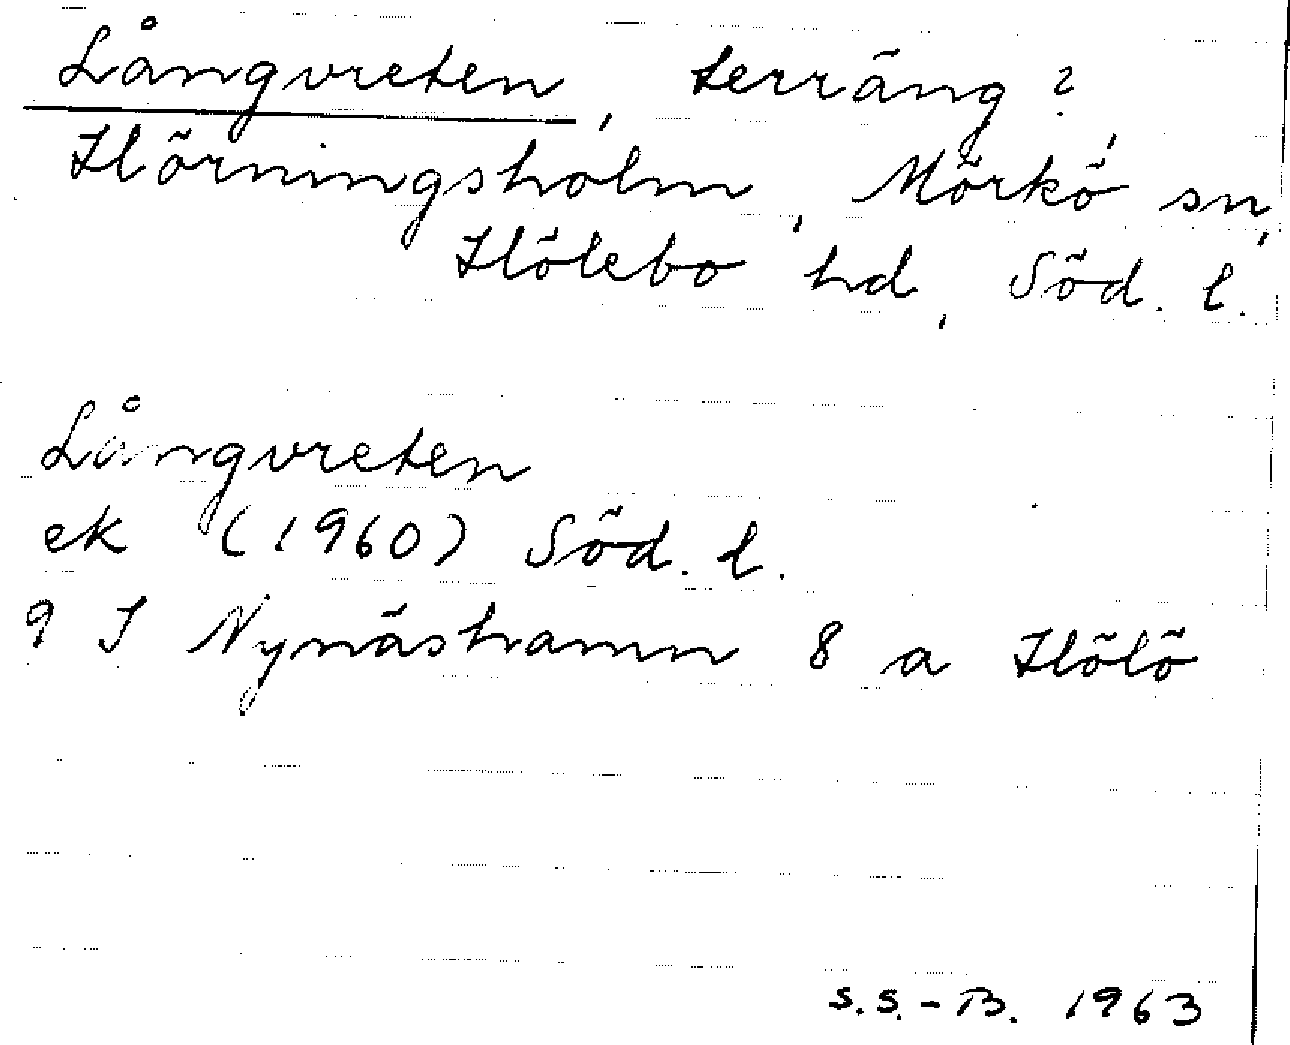 Långvreten, terräng?,
Hörningsholm, Mörkö sn,
Hölebo hd, Söd. l.
Långvreten
ek (1960) Söd. l.
9 I Nynäshamn 8 a Hölö
S.S.-B. 1963